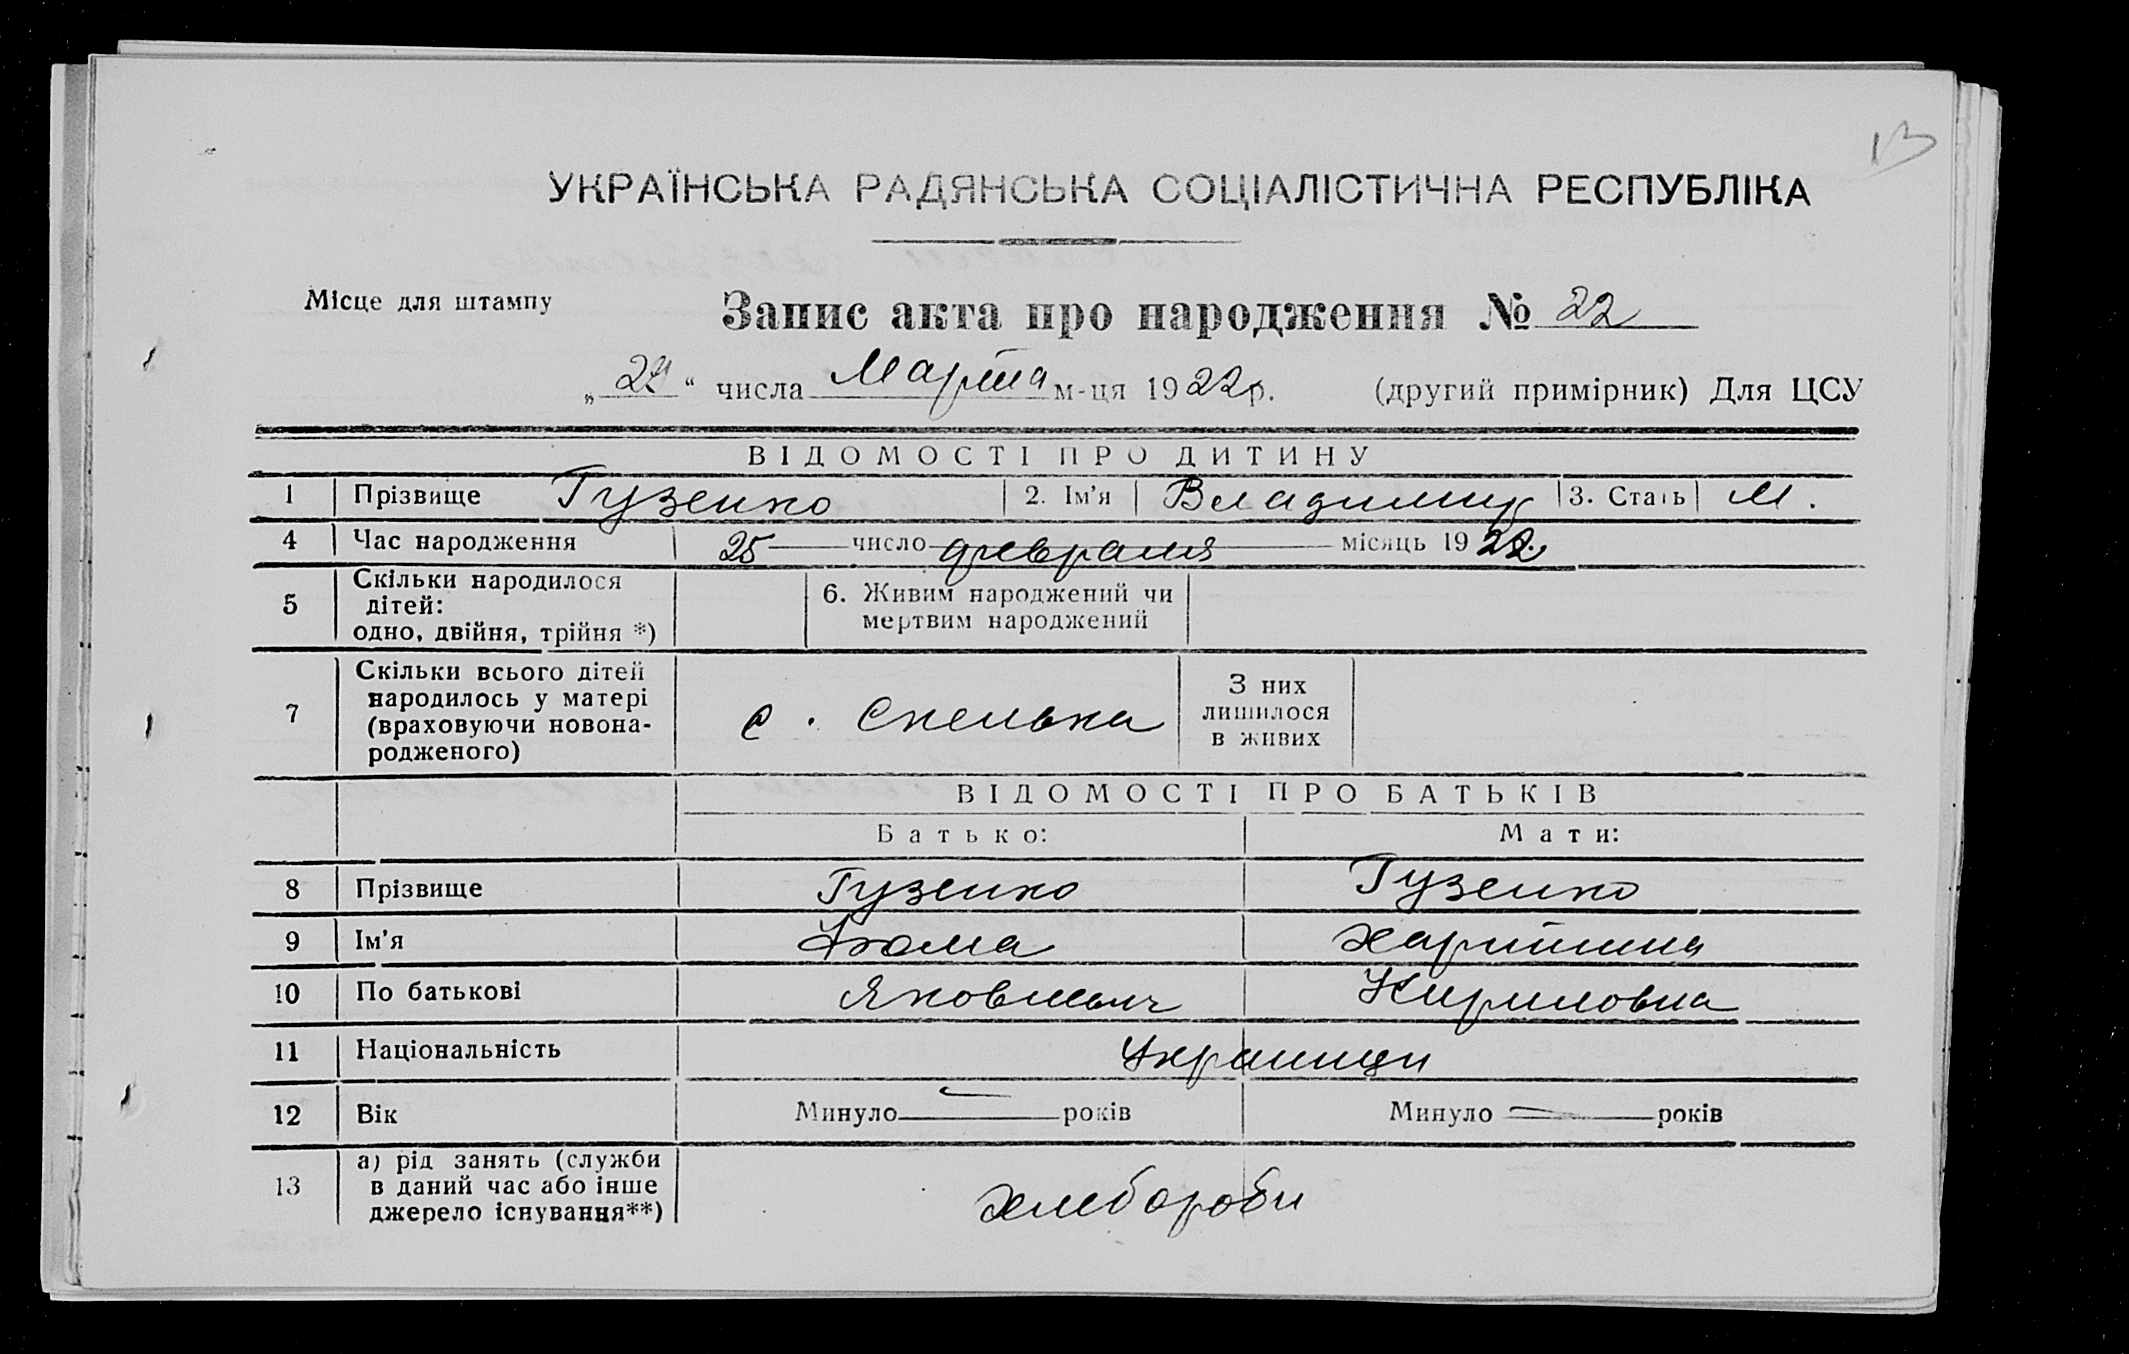 13
УКРАЇНСЬКА РАДЯНСЬКА СОЦІАЛІСТИЧНА РЕСПУБЛІКА
Місце для штампу
Запис акта про народження № 22
„ “ числа Марта м-ця 1922 р. (другий примірник) Для ЦСУ
ВІДОМОСТІ ПРО ДИТИНУ
1 Прізвище Гузенко 2. Ім’я Владимир 3. Стать М.
4 Час народження 25 число февраля місяць 1922.
5 Скільки народилося
дітей:
одно, двійня, трійня *)
6. Живим народжений чи
мертвим народжений
7 Скільки всього дітей
народилось у матері
(враховуючи новона-
родженого)
с. Скелька
З них
лишилося
в живих
ВІДОМОСТІ ПРО БАТЬКІВ
Батько: Мати:
8 Прізвище Гузенко Гузенко
9 Ім’я Харитина
10 По батькові Яковлевич Кириловна
11 Національність Украинци
12 Вік Минуло років Минуло років
13 а) рід занять (служби
в даний час або інше
джерело існування**)
хлебороби